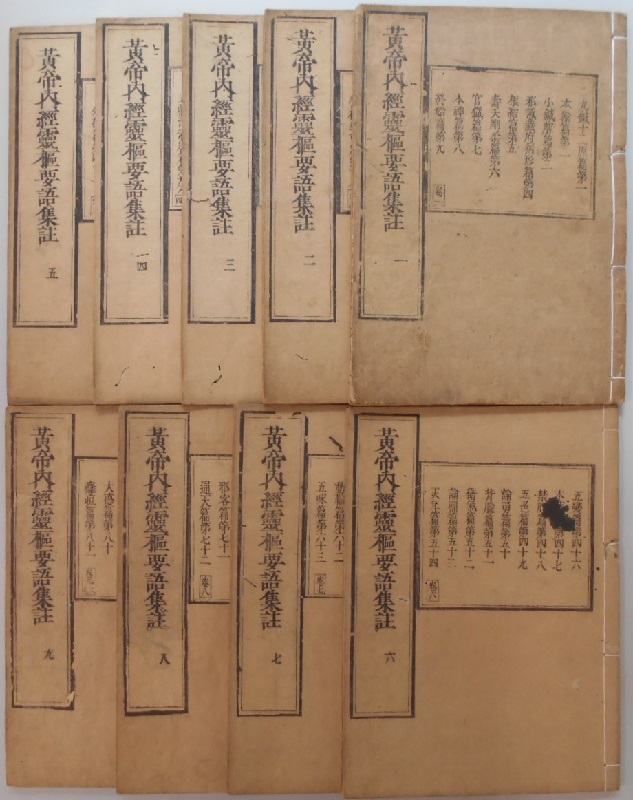 九鍼十二原篇第一
本輸篇第二
小鍼解篇第三
邪氣藏府病形篇第四
根結篇第五
壽夭剛柔篇第六
官鍼篇第七
本神篇第八
終始篇第九
卷一
黃帝內經靈樞要語集註
一
黃帝內經靈樞要語集註
二
黃帝內經靈樞要語集註
三
黃帝內經靈樞要語集註
四
黃帝內經靈樞要語集註
五
五變篇第四十六
本
第四十七
禁服篇第四十八
五色篇第四十九
論勇篇第五十
背腧篇第五十一
衛氣篇第五十二
論痛篇第五十三
天年篇第五十四
卷六
黃帝內經靈樞要語集註
六
篇第六十二
五味篇第六十三
卷七
黃帝內經靈樞要語集註
七
邪客篇第七十一
通天篇第七十二
卷八
黃帝內經靈樞要語集註
八
大惑篇第八十
癰疽篇第八十一
卷九
黃帝內經靈樞要語集註
九